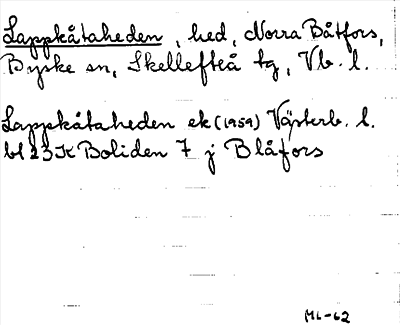 Lappkåtaheden, hed, Norra Båtfors,
Byske sn, Skellefteå tg, Vb. l.
Lappkåtaheden ek (1959) Västerb. l.
bl 23 K Boliden 7 j Blåfors
ML-62